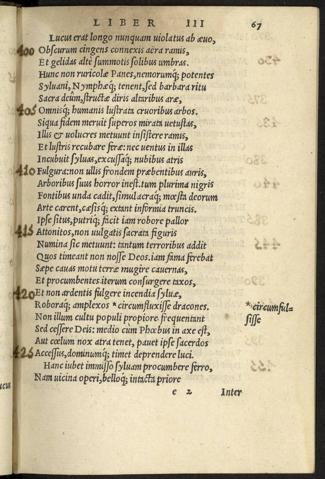 LIBER III 67
Lucus erat longo nunquam uiolatus ab æuo,
400 Obscurum cingens connexis aëra ramis,
Et gelidas alte summotis solibus umbras.
Hunc non ruricolæ Panes, nemorumq́; potentes
Syluani, Nymphæq́; tenent, sed barbara ritu
Sacra deûm, structæ diris altaribus aræ,
405 Omnisq́; humanis lustrata cruoribus arbos.
Siqua fidem meruit superos mirata uetustas,
Illis & uolucres metuunt insistere ramis,
Et lustris recubare feræ: nec uentus in illas
Incubuit syluas, excussaq́; nubibus atris
410 Fulgura: non ullis frondem præbentibus auris,
Arboribus suus horror inest. tum plurima nigris
Fontibus unda cadit, simulacraq́; mœsta deorum
Arte carent, cæsisq́; extant informia truncis.
Ipse situs, putriq́; facit iam robore pallor
415 Attonitos, non uulgatis sacrata figuris
Numina sic metuunt: tantum terroribus addit
Quos timeant non nosse Deos. iam fama ferebat
Sæpe cauas motu terræ mugire cauernas,
Et procumbentes iterum consurgere taxos,
420 Et non ardentis fulgere incendia syluæ,
Roboraq́; amplexos * circumfluxisse dracones. * circumful-
Non illum cultu populi propiore frequentant sisse
Sed cessere Deis: medio cum Phœbus in axe est,
Aut cœlum nox atra tenet, pauet ipse sacerdos
425 Accessus, dominumq́; timet deprendere luci.
Hanc iubet immisso syluam procumbere ferro,
Nam uicina operi, belloq́; intacta priore
e 2 Inter